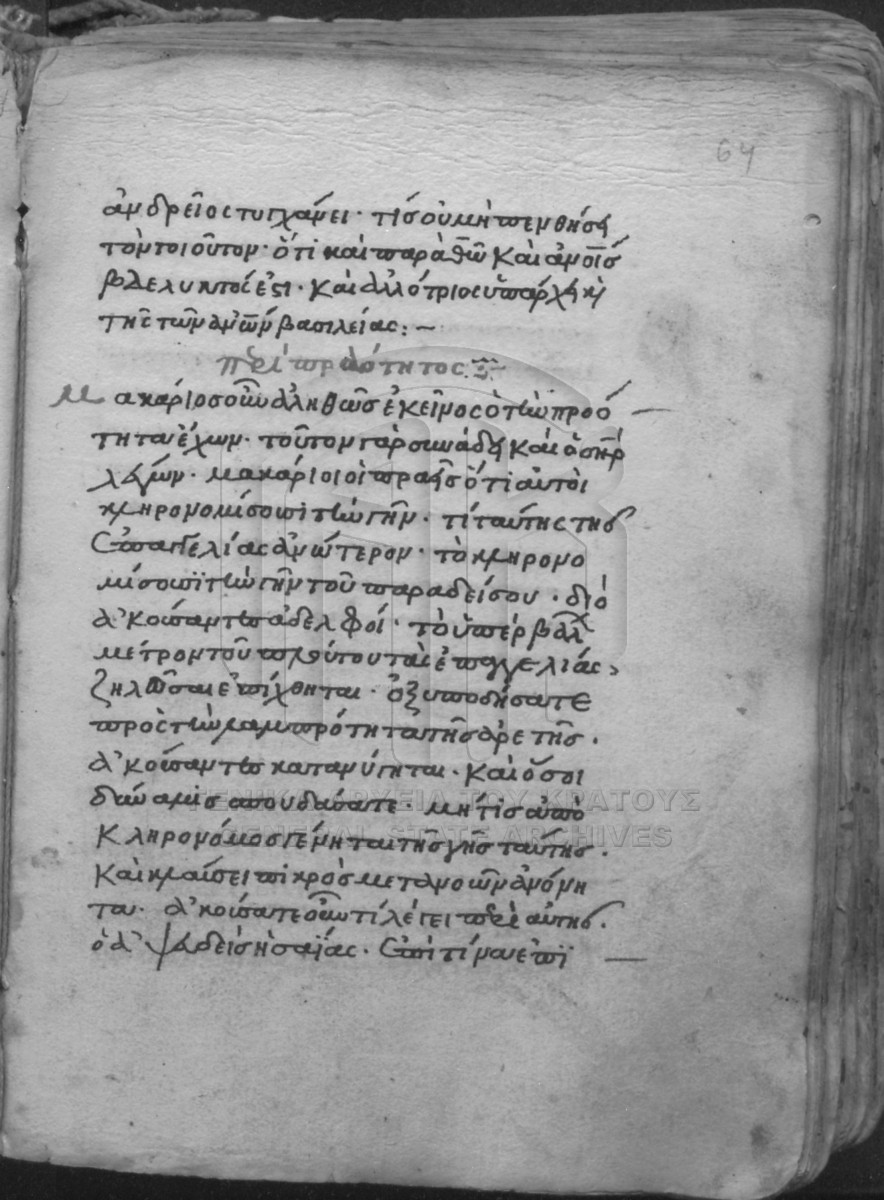 64
ἀνδρεῖος τυγχάνει· τίς οὐ μὴ πενθήσει
τὸν τοιοῦτον· ὅτι καὶ παρὰ θῶ καὶ ἀνοῖς
βδελυκτός ἐστι· καὶ ἀλλότριος ὑπάρχει κὶ
τῆς τῶν οὐνῶν βασιλείας:~
περὶ πραότητος
Μακάριος οὖν ἀληθῶς ἐκεῖνος ὁ τὴν πραό
τητα ἔχων· τοῦτον γὰρ συνάδει καὶ ὁ σηρ
λέγων· μακάριοι οἱ πραεῖς ὅτι αὐτοὶ
κληρονομίσουσι τὴν γῆν· τί ταύτης τῆς
ἐπαγγελίας ἀνώτερον· τὸ κληρονο
μίσουσϊ τὴν γῆν τοῦ παραδείσου· διὸ
ἀκούσαντες ἀδελφοί· τὸ ὑπερβάλλον
μέτρον τοῦ πλούτου τὰς ἐπαγγελίας,
ζηλῶσαι ἐπίχθηται· ὀξυποδήσατε
πρὸς τὴν λαμπρότητα τῆς ἀρετῆς.
ἀκούσαντες κατανύγηται· καὶ ὅσοι
δυνάμις σπουδάσατε· μή τις ἀπὸ
κληρονόμος γένηται τῆς γῆς ταύτης.
καὶ κλαύσει πικρὸς μετανοῶν ἀνόνη
τα· ἀκούσατε οὖν τί λέγει περὶ αὐτῆς.
ὁ Δαδ
ΓΕΝΙΚΑ ΑΡΧΕΙΑ ΤΟΥ ΚΡΑΤΟΥΣ
GENERAL STATE ARCHIVES